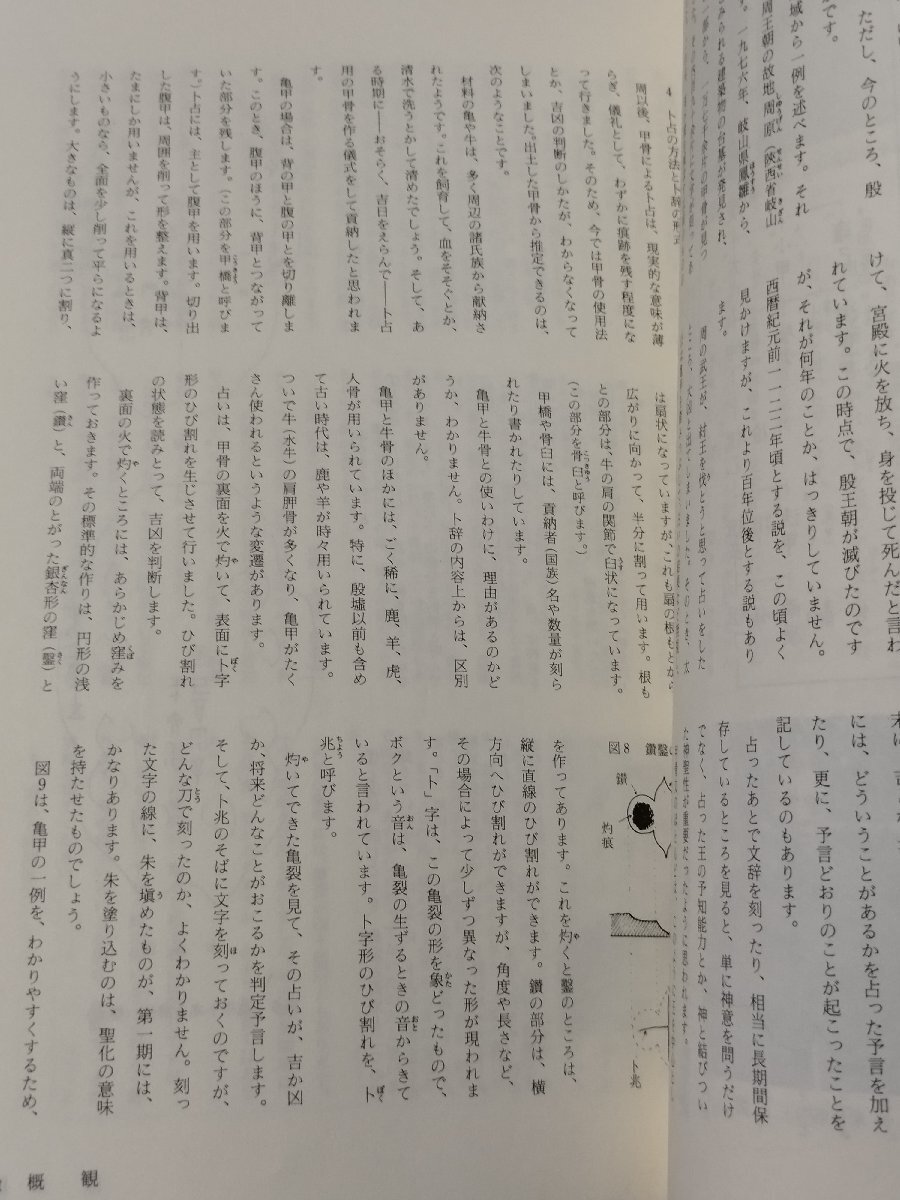 ただし、今のところ、殷
です。
域から一例を述べます。それ
周王朝の故地周原（陝西省岐山
す。一九七六年、岐山県鳳雛から、
みられる建築物の台基が発見され、
けて、宮殿に火を放ち、身を投じて死んだと言わ
れています。この時点で、殷王朝が滅びたのです
が、それが何年のことか、はっきりしていません。
西暦紀元前一一二二年頃とする説を、この頃よく
見かけますが、これより百年位後とする説もあり
ます。
周の武王が、紂王を伐とうと思って占いをした
には、どういうことがあるかを占った予言を加え
たり、更に、予言どおりのことが起こったことを
記しているのもあります。
占ったあとで文辞を刻ったり、相当に長期間保
存しているところを見ると、単に神意を問うだけ
でなく、占った王の予知能力とか、神と結びつい
た神聖性が重要だったように思われます。
4　卜占の方法と卜辞の形式
周以後、甲骨による卜占は、現実的な意味が薄
らぎ、儀礼として、わずかに痕跡を残す程度にな
って行きました。そのため、今では甲骨の使用法
とか、吉凶の判断のしかたが、わからなくなって
しまいました。出土した甲骨から推定できるのは、
次のようなことです。
材料の亀や牛は、多く周辺の諸氏族から献納さ
れたようです。これを飼育して、血をそそぐとか、
清水で洗うとかして清めたでしょう。そして、あ
る時期に――おそらく、吉日をえらんで――卜占
用の甲骨を作る儀式をして貢納したと思われま
す。
亀甲の場合は、背の甲と腹の甲とを切り離しま
す。このとき、腹甲のほうに、背甲とつながって
いた部分を残します。（この部分を甲橋と呼びま
す。）卜占には、主として腹甲を用います。切り出
した腹甲は、周囲を削って形を整えます。背甲は、
たまにしか用いませんが、これを用いるときは、
小さいものなら、全面を少し削って平らになるよ
うにします。大きなものは、縦に真二つに割り、
は扇状になっていますが、これも扇の根もとから
広がりに向かって、半分に割って用います。根も
との部分は、牛の肩の関節で臼状になっています。
（この部分を骨臼と呼びます。）
甲橋や骨臼には、貢納者（国族）名や数量が刻ら
れたり書かれたりしています。
亀甲と牛骨との使いわけに、理由があるのかど
うか、わかりません。卜辞の内容上からは、区別
がありません。
亀甲と牛骨のほかには、ごく稀に、鹿、羊、虎、
人骨が用いられています。特に、殷墟以前も含め
て古い時代は、鹿や羊が時々用いられています。
ついで牛（水牛）の肩胛骨が多くなり、亀甲がたく
さん使われるというような変遷があります。
占いは、甲骨の裏面を火で灼いて、表面に卜字
形のひび割れを生じさせて行いました。ひび割れ
の状態を読みとって、吉凶を判断します。
裏面の火で灼くところには、あらかじめ窪みを
作っておきます。その標準的な作りは、円形の浅
い窪（鑽）と、両端のとがった銀杏形の窪（鑿）と
図8　鑽鑿
鑽
灼痕
卜兆
を作ってあります。これを灼くと鑿のところは、
縦に直線のひび割れができます。鑽の部分は、横
方向へひび割れができますが、角度や長さなど、
その場合によって少しずつ異なった形が現われま
す。「卜」字は、この亀裂の形を象どったもので、
ボクという音は、亀裂の生ずるときの音からきて
いると言われています。卜字形のひび割れを、卜
兆と呼びます。
灼いてできた亀裂を見て、その占いが、吉か凶
か、将来どんなことがおこるかを判定予言します。
そして、卜兆のそばに文字を刻っておくのですが、
どんな刀で刻ったのか、よくわかりません。刻っ
た文字の線に、朱を塡めたものが、第一期には、
かなりあります。朱を塗り込むのは、聖化の意味
を持たせたものでしょう。
図9は、亀甲の一例を、わかりやすくするため、
概観